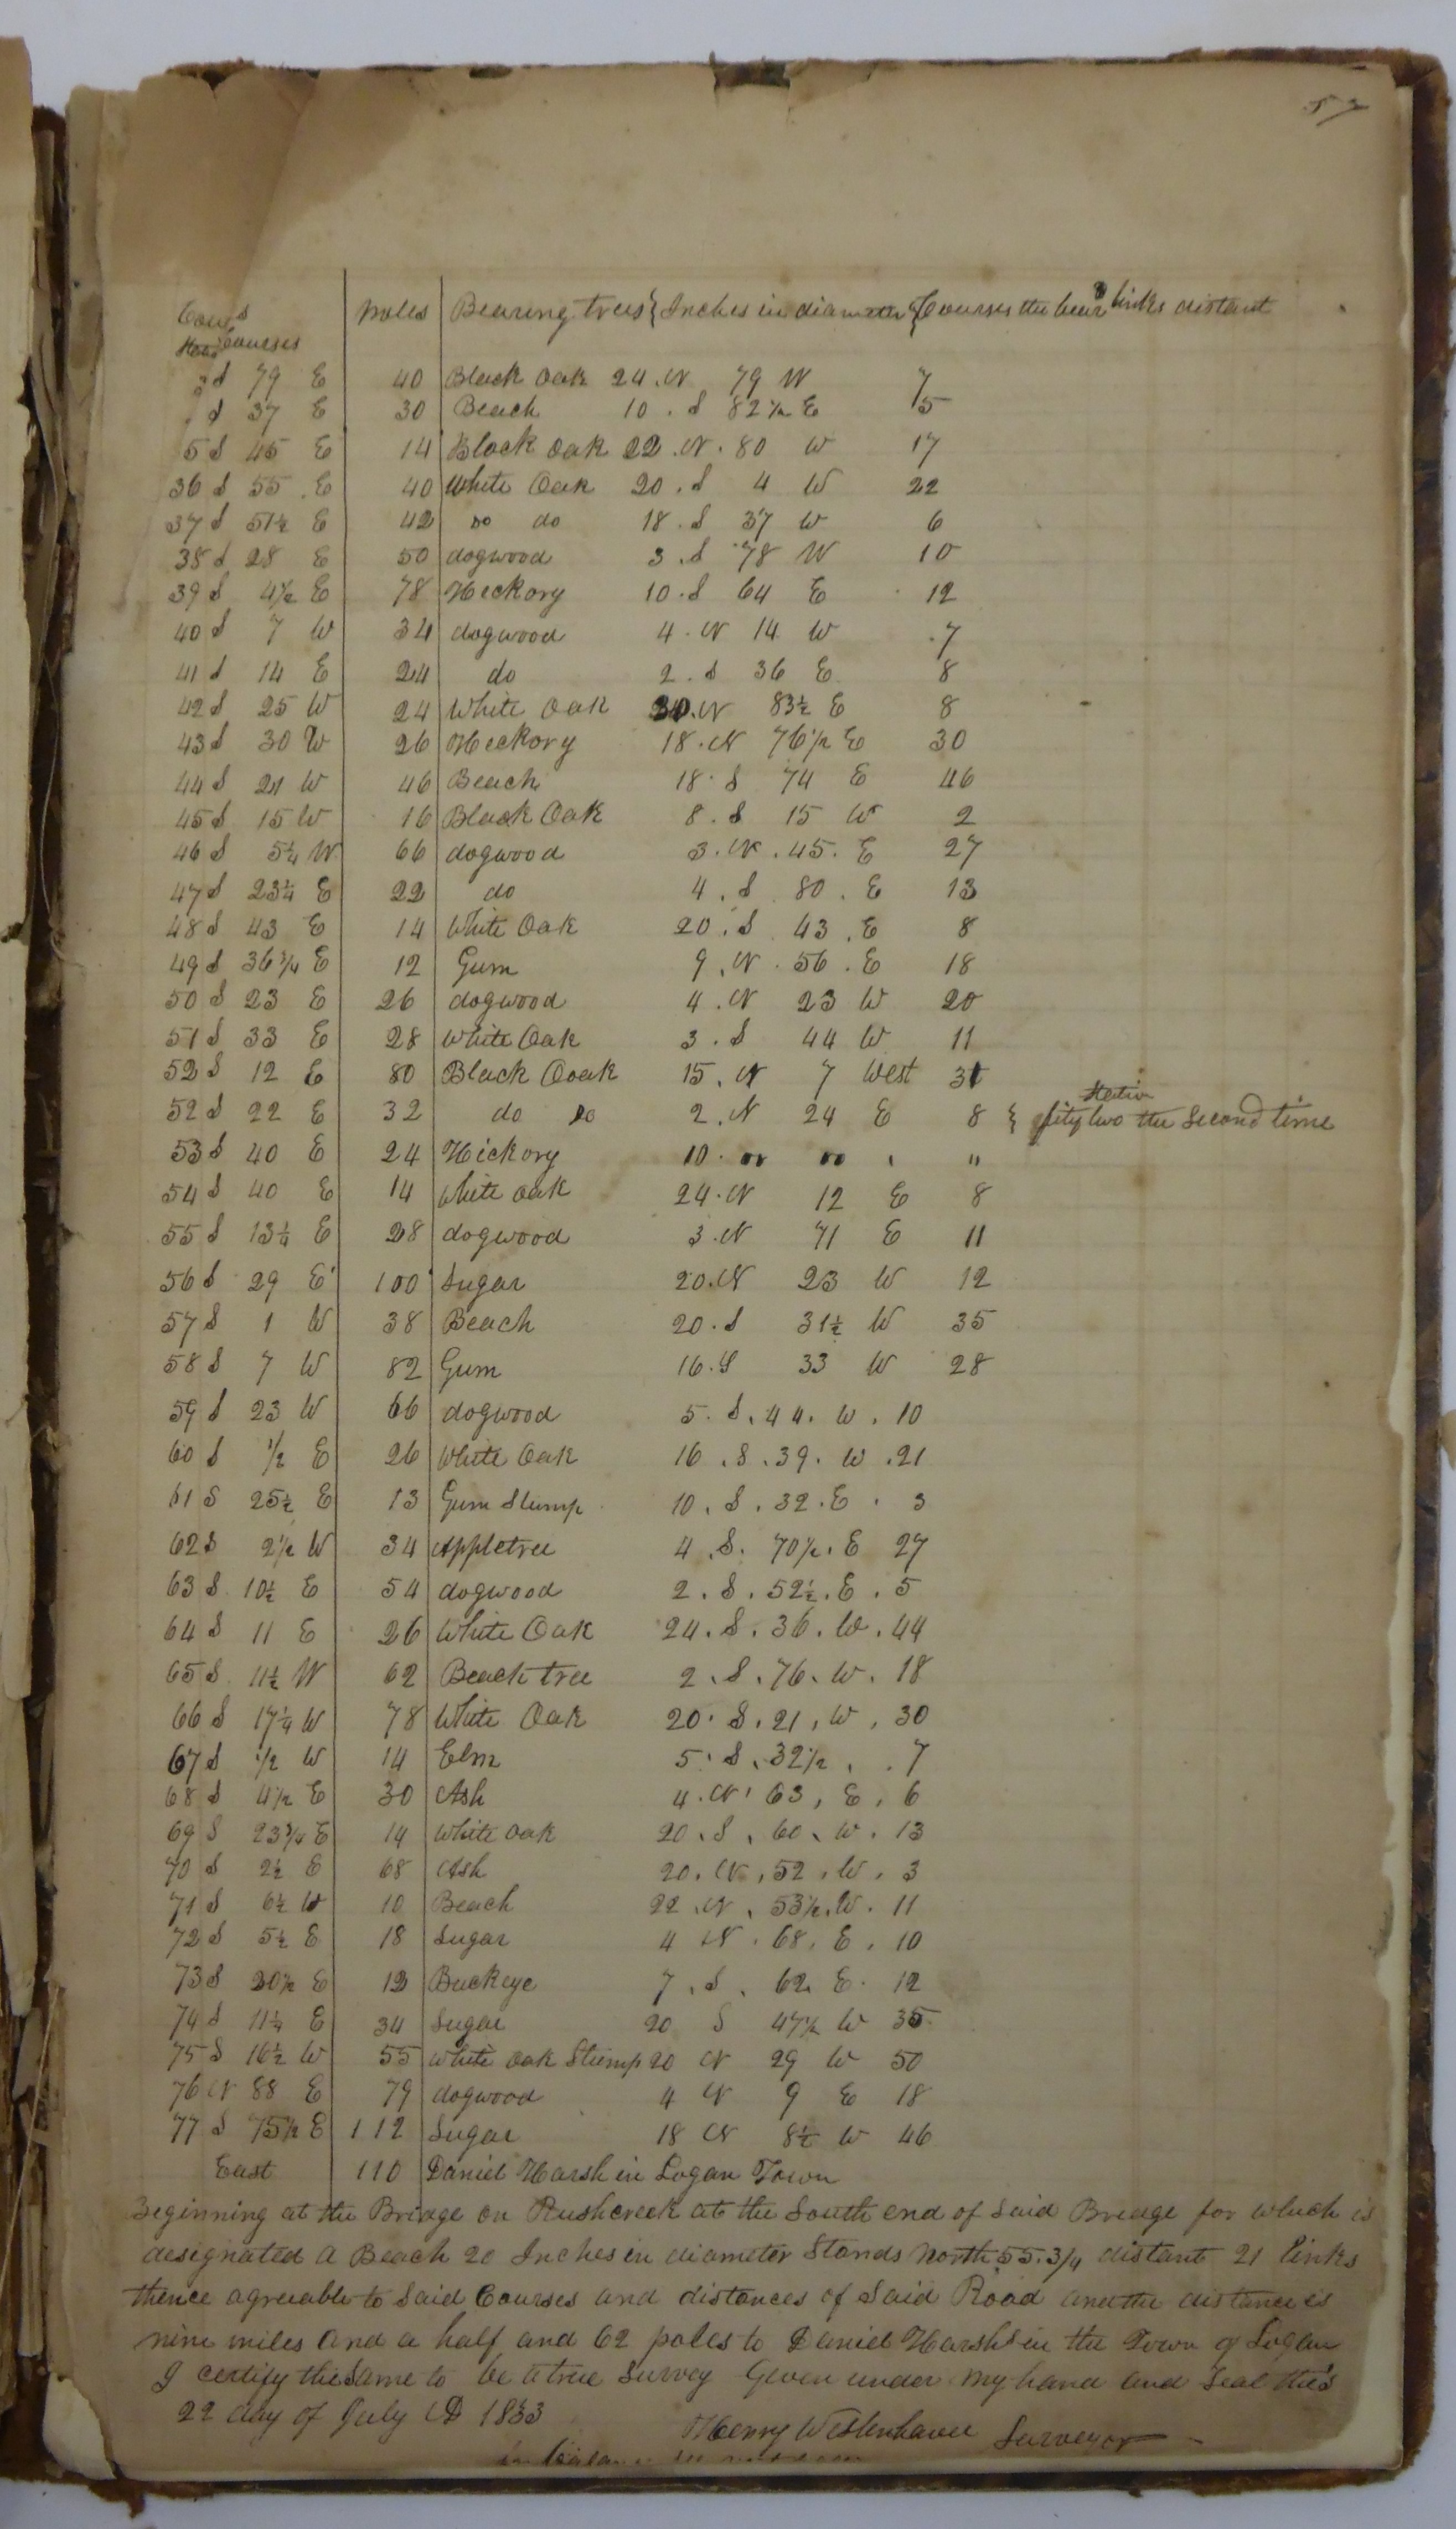 57
Cours Poles Bearing trees { Inches in diameter { Courses the bear & links distant
Courses
3 S 79 E 40 Black Oak 24 . N 79 W 7
S 37 E 30 Beach 10 . S 82 1/2 E 5
5 S 45 E 14 Black Oak 22 . N . 80 W 17
36 S 55 . E 40 White Oak 20 . S 4 W 22
37 S 51 1/2 E 42 Do do 18 . S 37 W 6
38 S 28 E 50 dogwood 3 . S 78 W 10
39 S 4 1/2 E 78 Heckory 10 . S 64 E 12
40 S 7 W 34 dogwood 4 . N 14 W 7
41 S 14 E 24 do 2 . S 36 E 8
42 S 25 W 24 White Oak 30 . N 83 1/2 E 8
43 S 30 W 26 Heckory 18 . N 76 1/2 E 30
44 S 21 W 46 Beach 18 . S 74 E 46
45 S 15 W 16 Black Oak 8 . S 15 W 2
46 S 5 1/4 W 66 dogwood 3 . N . 45 . E 27
47 S 23 1/4 E 22 do 4 . S 80 . E 13
48 S 43 E 14 White Oak 20 . S 43 . E 8
49 S 36 3/4 E 12 Gum 9 . N . 56 . E 18
50 S 23 E 26 dogwood 4 . N 23 W 20
51 S 33 E 28 White Oak 3 . S 44 W 11
52 S 12 E 80 Black Ooak 15 . N 7 West 31
52 S 22 E 32 do Do 2 . N 24 E 8 { fity two the Second time
53 S 40 E 24 Hickory 10 . "
54 S 40 E 14 White oak 24 . N 12 E 8
55 S 13 1/4 E 28 dogwood 3 . N 71 E 11
56 S 29 E 100 Sugar 20 . N 23 W 12
57 S 1 W 38 Beach 20 . S 31 1/2 W 35
58 S 7 W 82 Gum 16 . S 33 W 28
59 S 23 W 66 dogwood 5 . S . 44 . W . 10
60 S 1/2 E 26 White Oak 16 . S . 39 . W . 21
61 S 25 1/2 E 13 Gum Stump 10 . S . 32 . E . 3
62 S 2 1/2 W 34 Appletree 4 . S . 70 1/2 . E 27
63 S 10 1/2 E 54 dogwood 2 . S . 52 1/2 . E . 5
64 S 11 E 26 White Oak 24 . S . 36 . W . 44
65 S 11 1/2 W 62 Beach tree 2 . S . 76 . W . 18
66 S 17 1/4 W 78 White Oak 20 . S . 21 , W , 30
67 S 1/2 W 14 Elm 5 . S . 32 1/2 , . 7
68 S 4 1/2 E 30 Ash 4 . N . 63 , E , 6
69 S 23 3/4 E 14 White oak 20 . S . 60 . W . 13
70 S 2 1/2 E 68 Ash 20 . N . 52 . W . 3
71 S 6 1/2 W 10 Beach 22 . N . 53 1/2 . W . 11
72 S 5 1/2 E 18 Sugar 4 N . 68 . E . 10
73 S 20 1/2 E 12 Buckeye 7 . S . 62 E . 12
74 S 11 1/4 E 34 Sugar 20 S 47 1/2 W 35
75 S 16 1/2 W 55 White oak Stump 20 N 29 W 50
76 N 88 E 79 dogwood 4 N 9 E 18
77 S 75 1/2 E 112 Sugar 18 N 8 1/2 W 46
East 110 Daniel Harsh in Logan Town
Beginning at the Bridge on Rushcreek at the South end of Said Bridge for which is
designated a Beach 20 Inches in diameter Stands North 55 . 3/4 distant 21 links
thence agreeable to Said Courses and distances of Said Road and the distance is
nine miles and a half and 62 poles to Daniel Harshs in the Town of Logan
I certify the Same to be a true Survey Given under my hand and Seal this
22 day of July AD 1833
Henry Westenhaver Surveyor